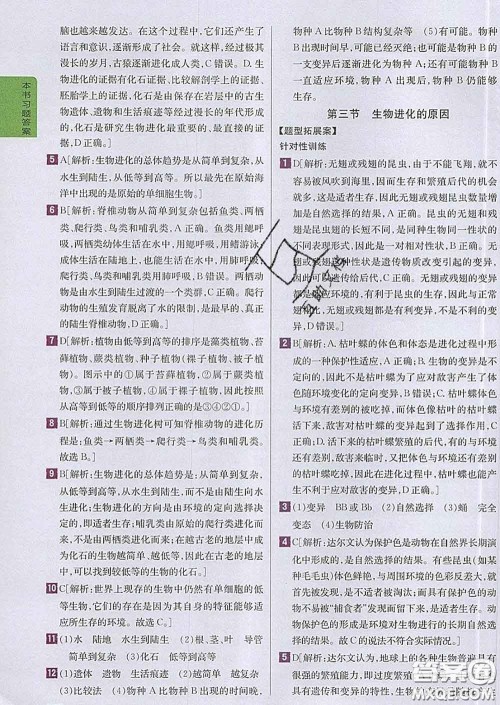 脑也越来越发达。在这个过程中，它们还产生了
语言和意识，逐渐形成了社会。就这样，经过极其
漫长的岁月，古猿逐渐进化成人类，C错误。D.生
物进化的证据有化石证据、比较解剖学上的证据、
胚胎学上的证据，化石是保存在岩层中的古生
物遗体、遗物和生活痕迹等经过漫长的年代形成
的，化石是研究生物进化最重要的、最直接的证
据，D正确。]
5 A[解析:生物进化的总体趋势是从简单到复杂，从
水生到陆生，从低等到高等。所以最先在原始海
洋中出现的是原始的单细胞生物。]
6 B[解析:脊椎动物从简单到复杂包括鱼类、两栖
类、爬行类、鸟类和哺乳类，A正确。鱼类用鳃呼
吸，两栖类幼体生活在水中，用鳃呼吸，用鳍游泳，
成体生活在陆地上，也能生活在水中，用肺呼吸，
爬行类、鸟类和哺乳类用肺呼吸，B错误。两栖动
物是由水生到陆生过渡的一个类群，C正确。爬行
动物的生殖发育脱离了水的限制，是最早的、真正
的陆生脊椎动物，D正确。]
7 D[解析:植物由低等到高等的排序是藻类植物、苔
藓植物、蕨类植物、种子植物(裸子植物、被子植
物)。图示中的①属于苔藓植物，②属于蕨类植
物，③属于被子植物，④属于裸子植物，因此按照
从高等到低等的顺序排列正确的是③④②①。]
8 B[解析:通过生物进化树可知脊椎动物的进化历
程是:鱼类→两栖类→爬行类→鸟类和哺乳类。
故选B。]
9 B[解析:生物进化的总体趋势是:从简单到复杂，
从低等到高等，从水生到陆生，而不是由陆生向水
生进化；生物进化的方向是由环境的定向选择决
定的，即适者生存；哺乳类是由原始的爬行类进化而
来，不是由两栖类进化而来的；在越古老的地层中
成为化石的生物越简单、越低等，因此在古老的地层
中，可以找到较低等的生物的化石。]
10 C[解析:世界上现存的生物中仍然有单细胞的低
等生物，它们的存在是因为其自身的特征能够适
应所生存的环境。故选C。]
11 (1)水　陆地　水生到陆生　(2)根、茎、叶　导管
简单到复杂　(3)低等到高等
12 (1)遗体　遗物　生活痕迹　(2)越简单　越复杂
(3)比较法　(4)物种A比物种B出现的时间晚、
物种A比物种B结构复杂等　(5)有可能。物种
B出现时间早，可能已经灭绝；也可能是物种B的
一支变异后逐渐进化为物种A，而原来的物种B
一直适应环境，物种A出现后，物种B仍能够
生存。
第三节　生物进化的原因
【题型拓展案】
针对性训练
1 D[解析:无翅或残翅的昆虫，由于不能飞翔，就不
容易被风吹到海里，因而生存和繁殖后代的机会
就多，这是适者生存，因此无翅或残翅昆虫数量增
加是自然选择的结果，A正确。昆虫的无翅和残
翅是同种昆虫翅的不同表现，是同种生物同一性状
的不同表现形式，因此为一对相对性状，B正确。无
翅或残翅的性状是遗传物质改变引起的变异，因
此可以遗传给后代，C正确。无翅或残翅的变异
能适应海岛环境，有利于昆虫的生存，因此，无翅
或残翅的昆虫的变异对昆虫来说是有利的变异，
不是不利的变异，D错误。]
2 B[解析:A.枯叶蝶的体色和体态是进化过程中形
成的一种保护性适应，A正确。B.生物的变异是不
定向的，因此，不是枯叶蝶为了应对敌害产生了体
色和体态的定向变异，B错误。C.枯叶蝶原有体色
与环境有差别的被吃掉，而体色像枯叶的枯叶蝶
活下来，说明敌害对枯叶蝶的变异起到了选择作
用，C正确。D.活下来的枯叶蝶繁殖的后代，有的
体色与环境一致，而有的又出现体色与环境的差
异，敌害来临时，又把体色与环境不一致的
枯叶蝶吃掉，因此在进化过程中，枯叶蝶也可能产
生不利于应对敌害的变异，D正确。]
3 (1)变异　BB或Bb　(2)自然选择　(3)蛹　完全
变态　(4)生物防治
4 C[解析:达尔文认为保护色是动物在自然界长期演
化中形成的，是自然选择的结果。有些昆虫(如某
种毛毛虫)体色鲜艳，与周围环境的色彩形成对比，
容易被发现，是不适者被淘汰；而具有与环境色彩相
似的保护色，则不易为“捕食者”发现而得以生存，
动物保护色的形成，是动物与环境相互选择、适者
生存的，不是动物躲避敌害、保护自己、长期主动适
应环境形成的结果。故C的说法不符合实际。]
5 D[解析:达尔文认为，地球上的各种生物普遍具有
很强的
本书习题答案
答案圈
MXQE.COM